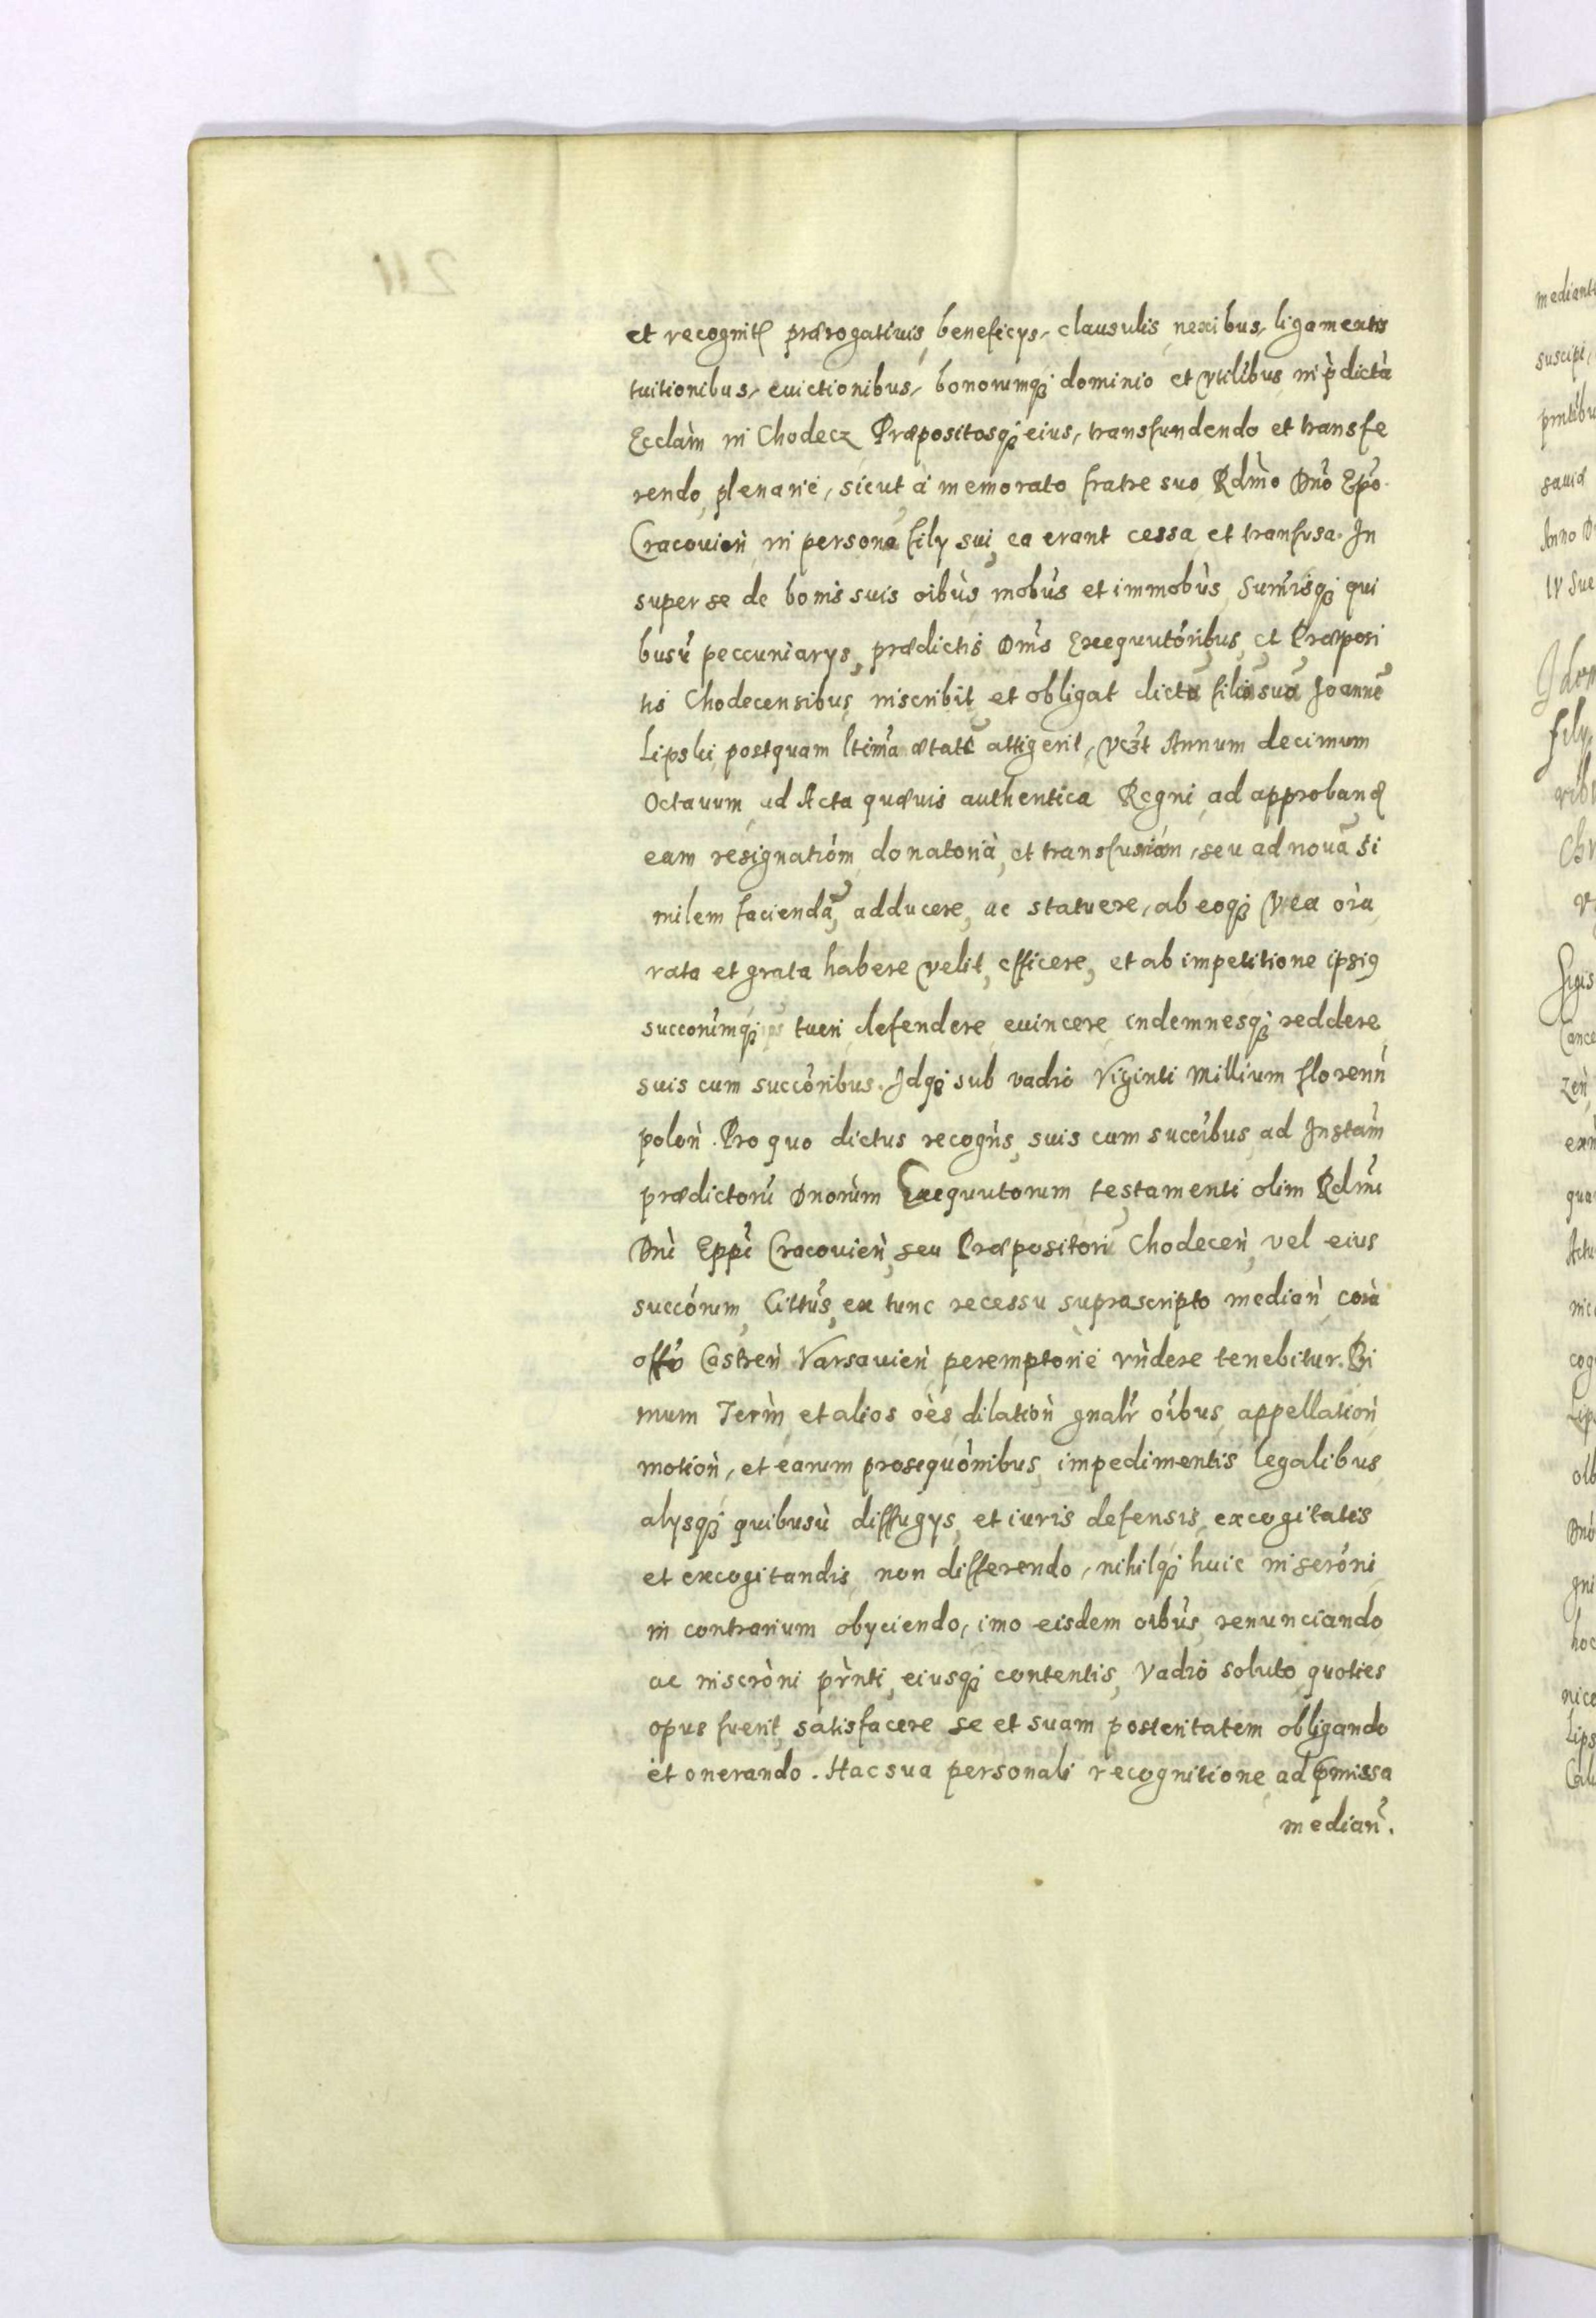 et recognit prærogatiuis, beneficys, clausulis, nexibus, ligamentis
tuitionibus, euictionibus, bonorumq3 dominio et vtilibus, in p̀dictà
Ecclàm in Chodecz Præpositosq3 eius, transfundendo et transfe
rendo, plenariè, sicut à memorato fratre suo Rdm̀o Dnò Epò
Cracouien̉ in persona fily sui, ea erant cessa et tranfusa. In
super se de bonis suis oibùs mobùs et immobùs, Sum̉isq3 qui
busù peccuniarys, prædictis Dnìs Exequutóribus, et Præposi
tis Chodecensibus, inscribit et obligat dictũ filiũ suũ Joannẽ
Lipski, postquam ltimã ætatẽ attigerit, vczt Annum decimum
Octauum, ad Acta quæuis authentica Regni, ad approband
eam resignatióm donatorià, et transfusióm, seu ad nouã si
milem faciendã, adducere, ac statuere, ab eoq3 vt ea oìa
rata et grata habere velit, efficere, et ab impetitione ipsi9
succorùmq3 tueri defendere euincere indemnesq3 reddere
suis cum succòribus. Idq3 sub vadio Viginti Millium florenn̉
polon̉. Pro quo dictus recogǹs, suis cum succìbus, ad Instam̉
prædictorù Dnorùm Exequutorum testamenti olim Rdm̉i
Dnì Eppì Cracouien̉, seu Præpositorũ Chodecen̉, vel eius
succórum, Cittùs, ex tunc recessu suprascripto median̉ corà
offò Castren̉ Varsauien̉ peremptoriè rǹdere tenebitur. Pri
mum Term̉, et alios oès dilation̉ gnalr̉ oìbus, appellation̉
motion̉, et earum prosequònibus, impedimentis legalibus
alysq3 quibusù diffugys, et iuris defensis, excogitatis
et excogitandis non differendo, nihilq3 huic inscròni
in contrarium obyciendo, imo eisdem oibùs renunciando
ac inscròni pr̀nti, eiusq3 contentis, Vadio soluto, quoties
opus fuerit, satisfacere se et suam posteritatem obligando
et onerando. Hac sua personali recognitione ad p̀missa
median̉.